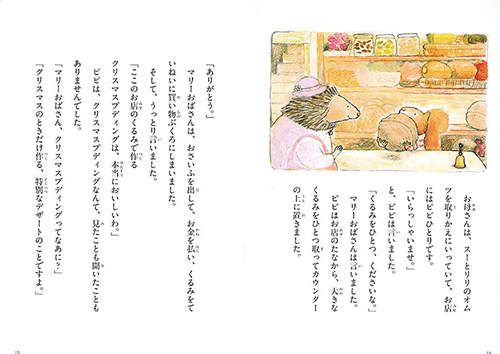 お母さんは、スーとリリのオム
ツを取りかえにいっていて、お店
にはピピひとりです。
「いらっしゃいませ。」
と、ピピは言いました。
「くるみをひとつ、くださいな。」
マリーおばさんは言いました。
ピピはお店のたなから、大きな
くるみをひとつ取ってカウンター
の上に置きました。
14
「ありがとう。」
マリーおばさんは、おさいふを出して、お金を払い、くるみをて
いねいに買い物ぶくろにしまいました。
そして、うっとり言いました。
「ここのお店のくるみで作る
クリスマスプディングは、本当においしいわ。」
ピピは、クリスマスプディングなんて、見たことも聞いたことも
ありませんでした。
「マリーおばさん、クリスマスプディングってなあに？」
「クリスマスのときだけ作る、特別なデザートのことですよ。」
15